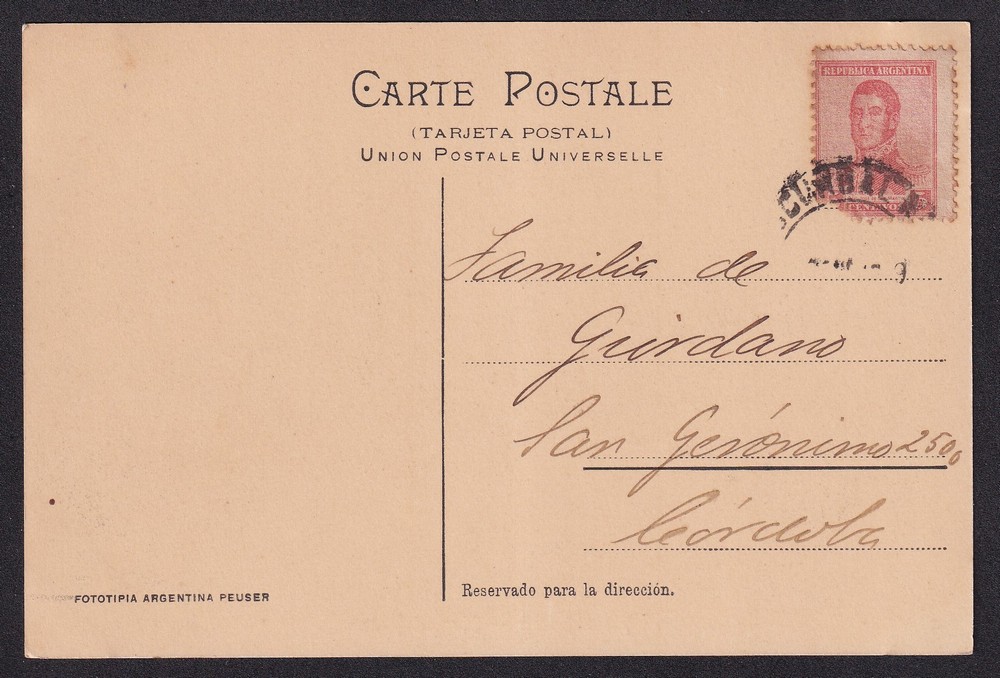 CARTE POSTALE
(TARJETA POSTAL)
UNION POSTALE UNIVERSELLE
REPUBLICA ARGENTINA
CENTAVOS
Familia de
Giordano
San Gerónimo 250
Córdoba
Reservado para la dirección.
FOTOTIPIA ARGENTINA PEUSER